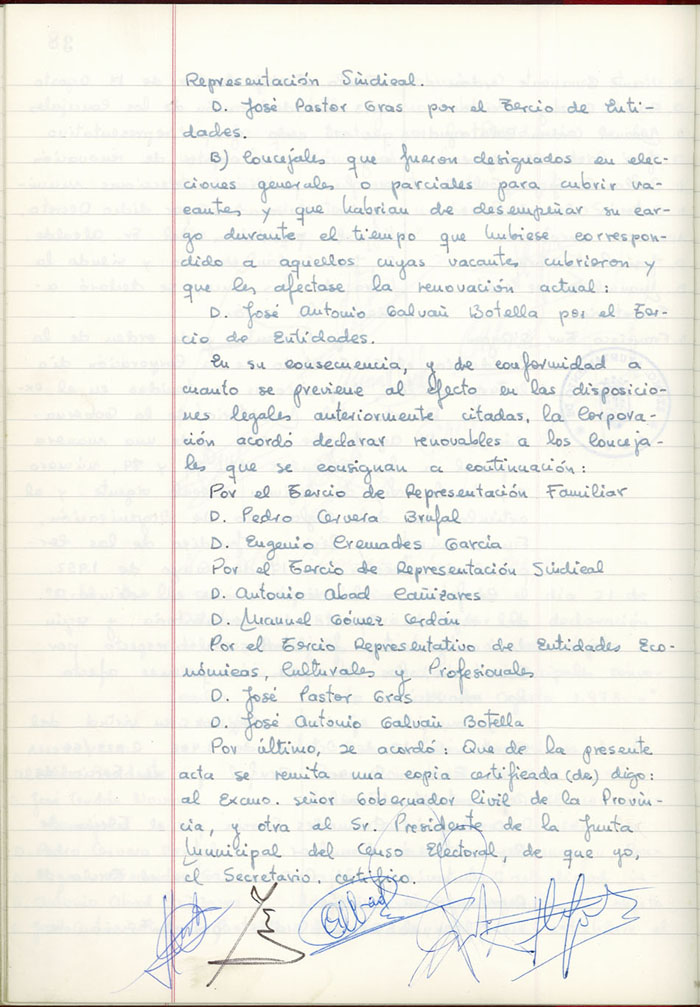 Representación Sindical.
D. José Pastor Gras por el Tercio de Enti-
dades.
B) Concejales que fueron designados en elec-
ciones generales o parciales para cubrir va-
cantes y que habrian de desempeñar su car-
go durante el tiempo que hubiese correspon-
dido á aquellos cuyas vacantes cubrieron y
que les afectase la renovación actual:
D. José Antonio Galvañ Botella por el Ter-
cio de Entidades.
En su consecuencia, y de conformidad a
cuanto se previene al efecto en las disposicio-
nes legales anteriormente citadas, la Corpora-
ción acordó declarar renovables a los Conceja-
les que se consignan a continuación:
Por el Tercio de Representación Familiar
D. Pedro Cervera Brufal
D. Eugenio Cremades García
Por el Tercio de Representación Sindical
D. Antonio Abad Cañizares
D. Manuel Gómez Cerdán
Por el Tercio Representativo de Entidades Eco-
nómicas, Culturales y Profesionales
D. José Pastor Gras
D. José Antonio Galvañ Botella
Por último, se acordó: Que de la presente
acta se remita una copia certificada (de) digo:
al Excmo. señor Gobernador Civil de la Provin-
cia, y otra al Sr. Presidente de la Junta
Municipal del Censo Electoral, de que yo,
el Secretario, certifico.